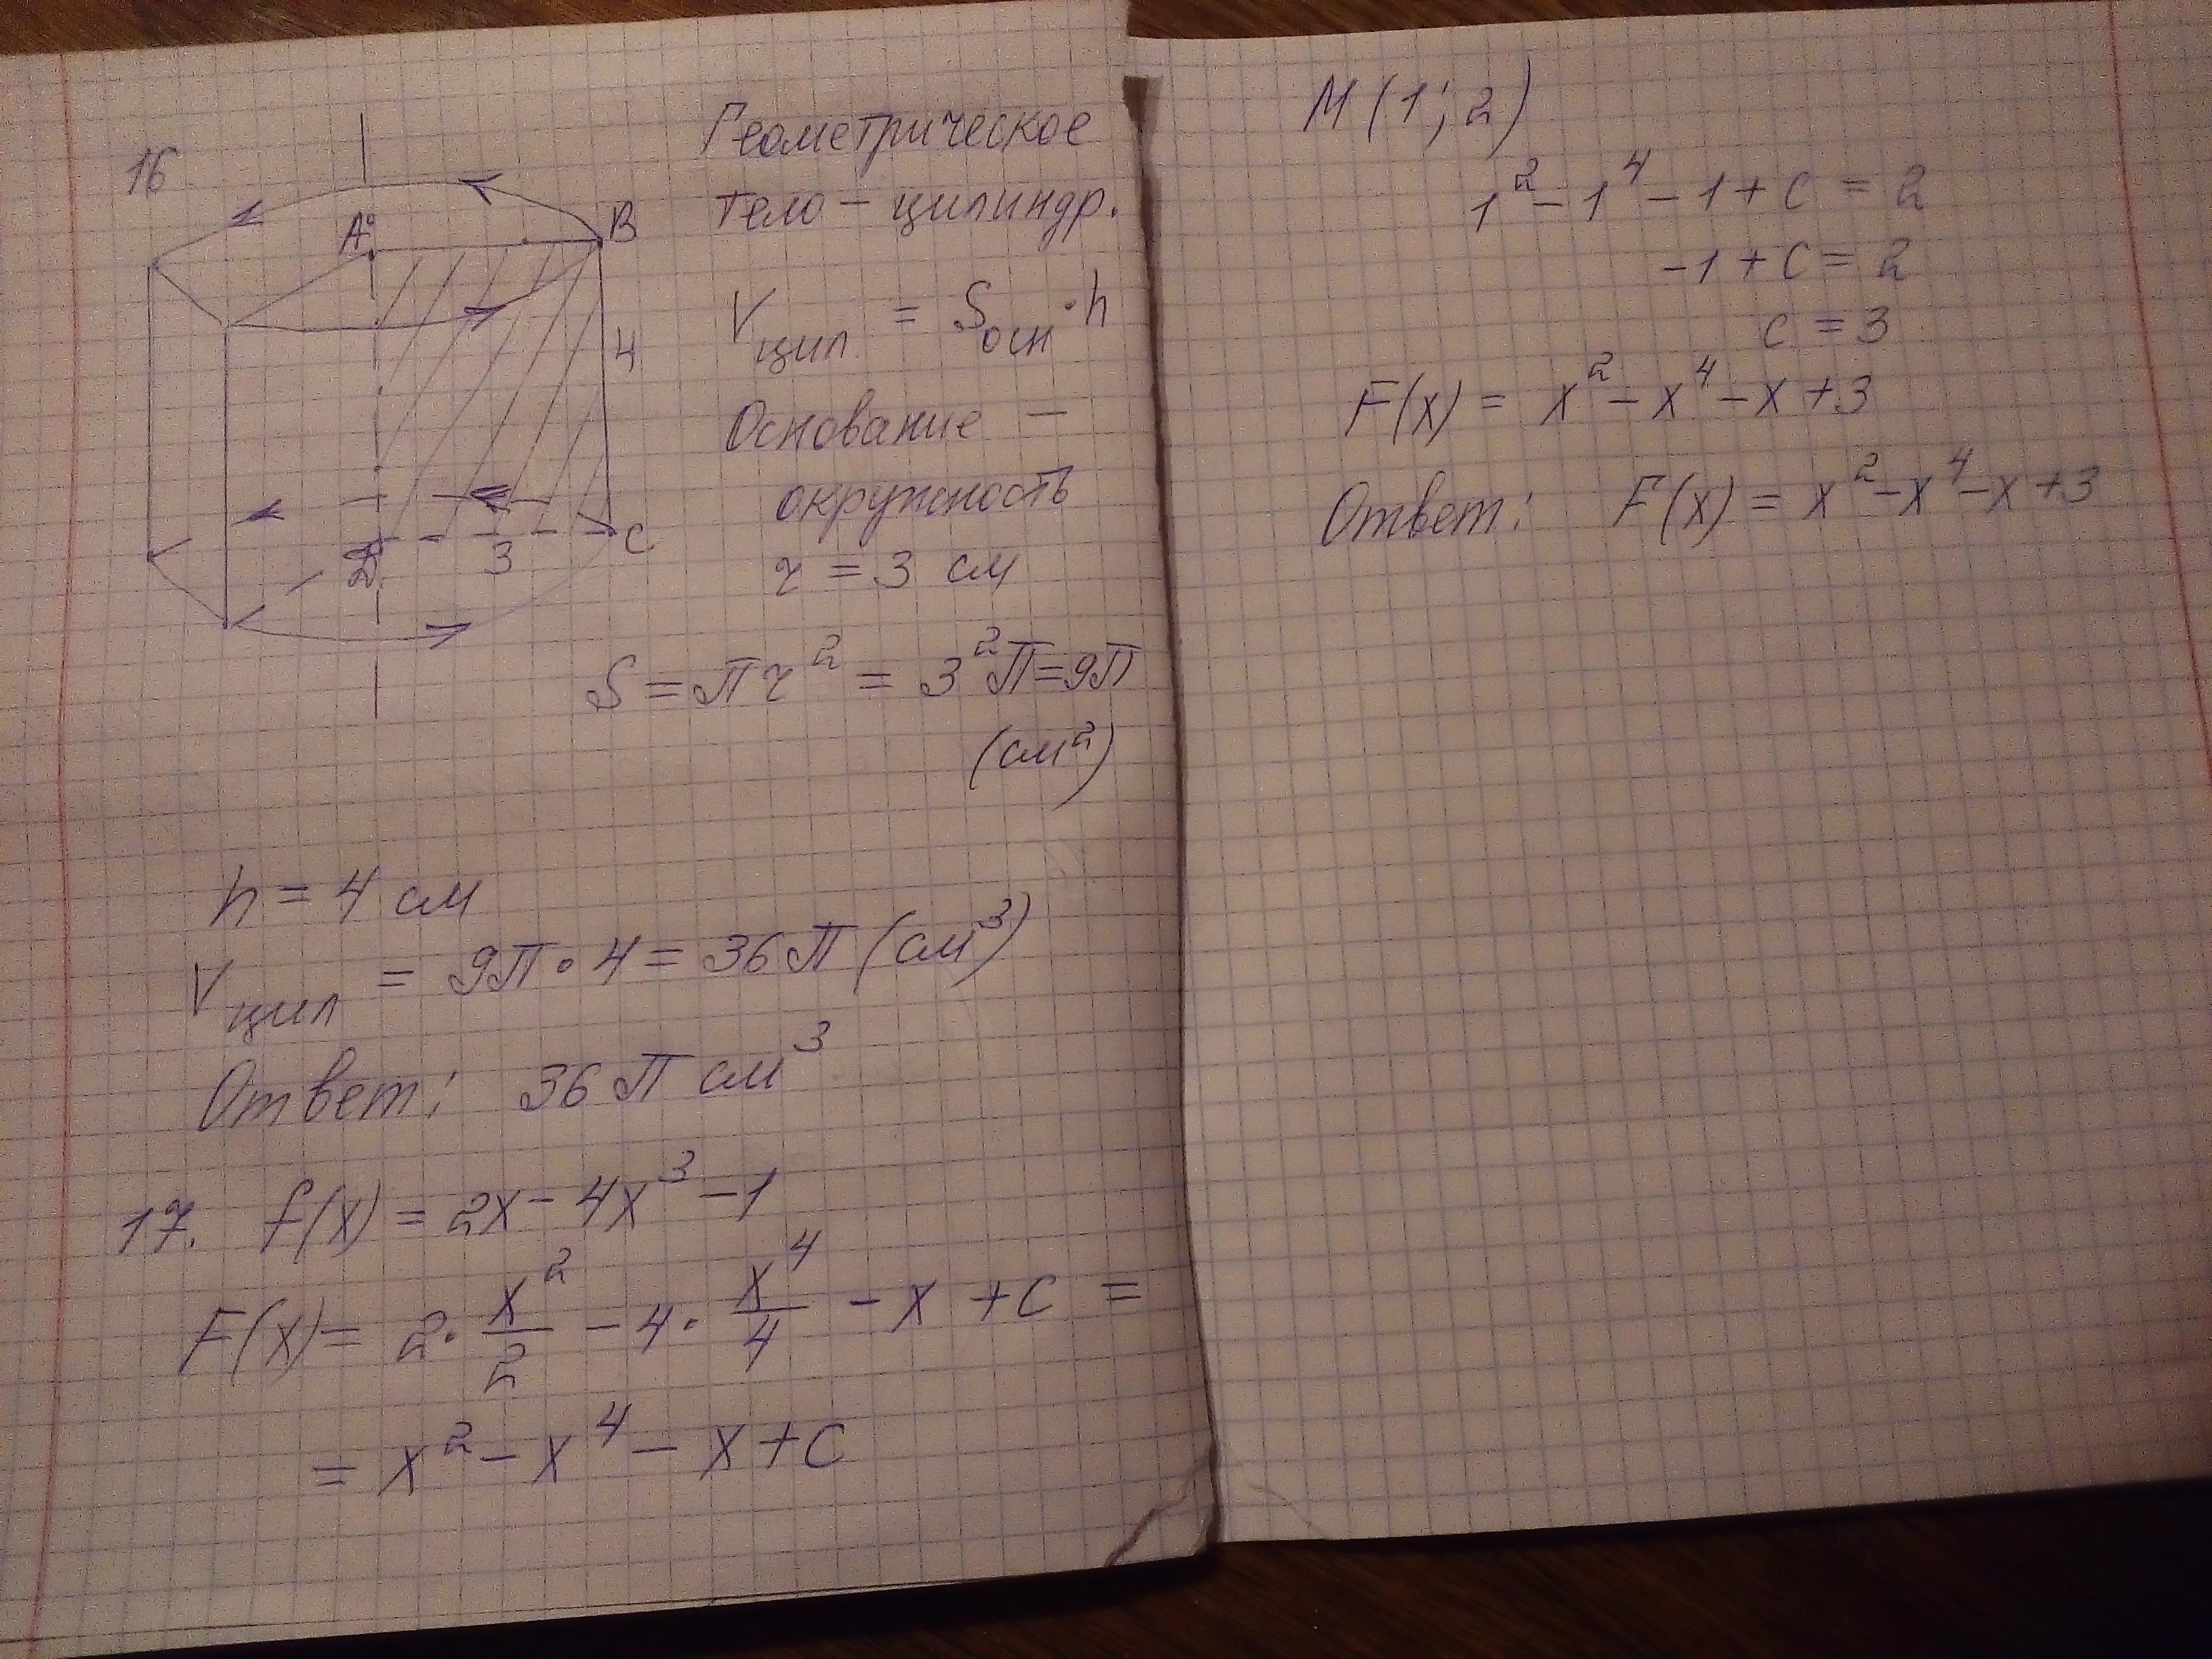 16
A
B
4
D
3
C
Геометрическое
тело – цилиндр.
Vцил. = Sосн · h
Основание –
окружность
r = 3 см
S = πr² = 3²π = 9π
(см²)
h = 4 см
Vцил = 9π · 4 = 36π (см³)
Ответ: 36π см³
17. f(x) = 2x - 4x³ - 1
F(x) = 2 · x²/2 - 4 · x⁴/4 - x + C =
= x² - x⁴ - x + C
M (1; 2)
1² - 1⁴ - 1 + C = 2
-1 + C = 2
C = 3
F(x) = x² - x⁴ - x + 3
Ответ: F(x) = x² - x⁴ - x + 3